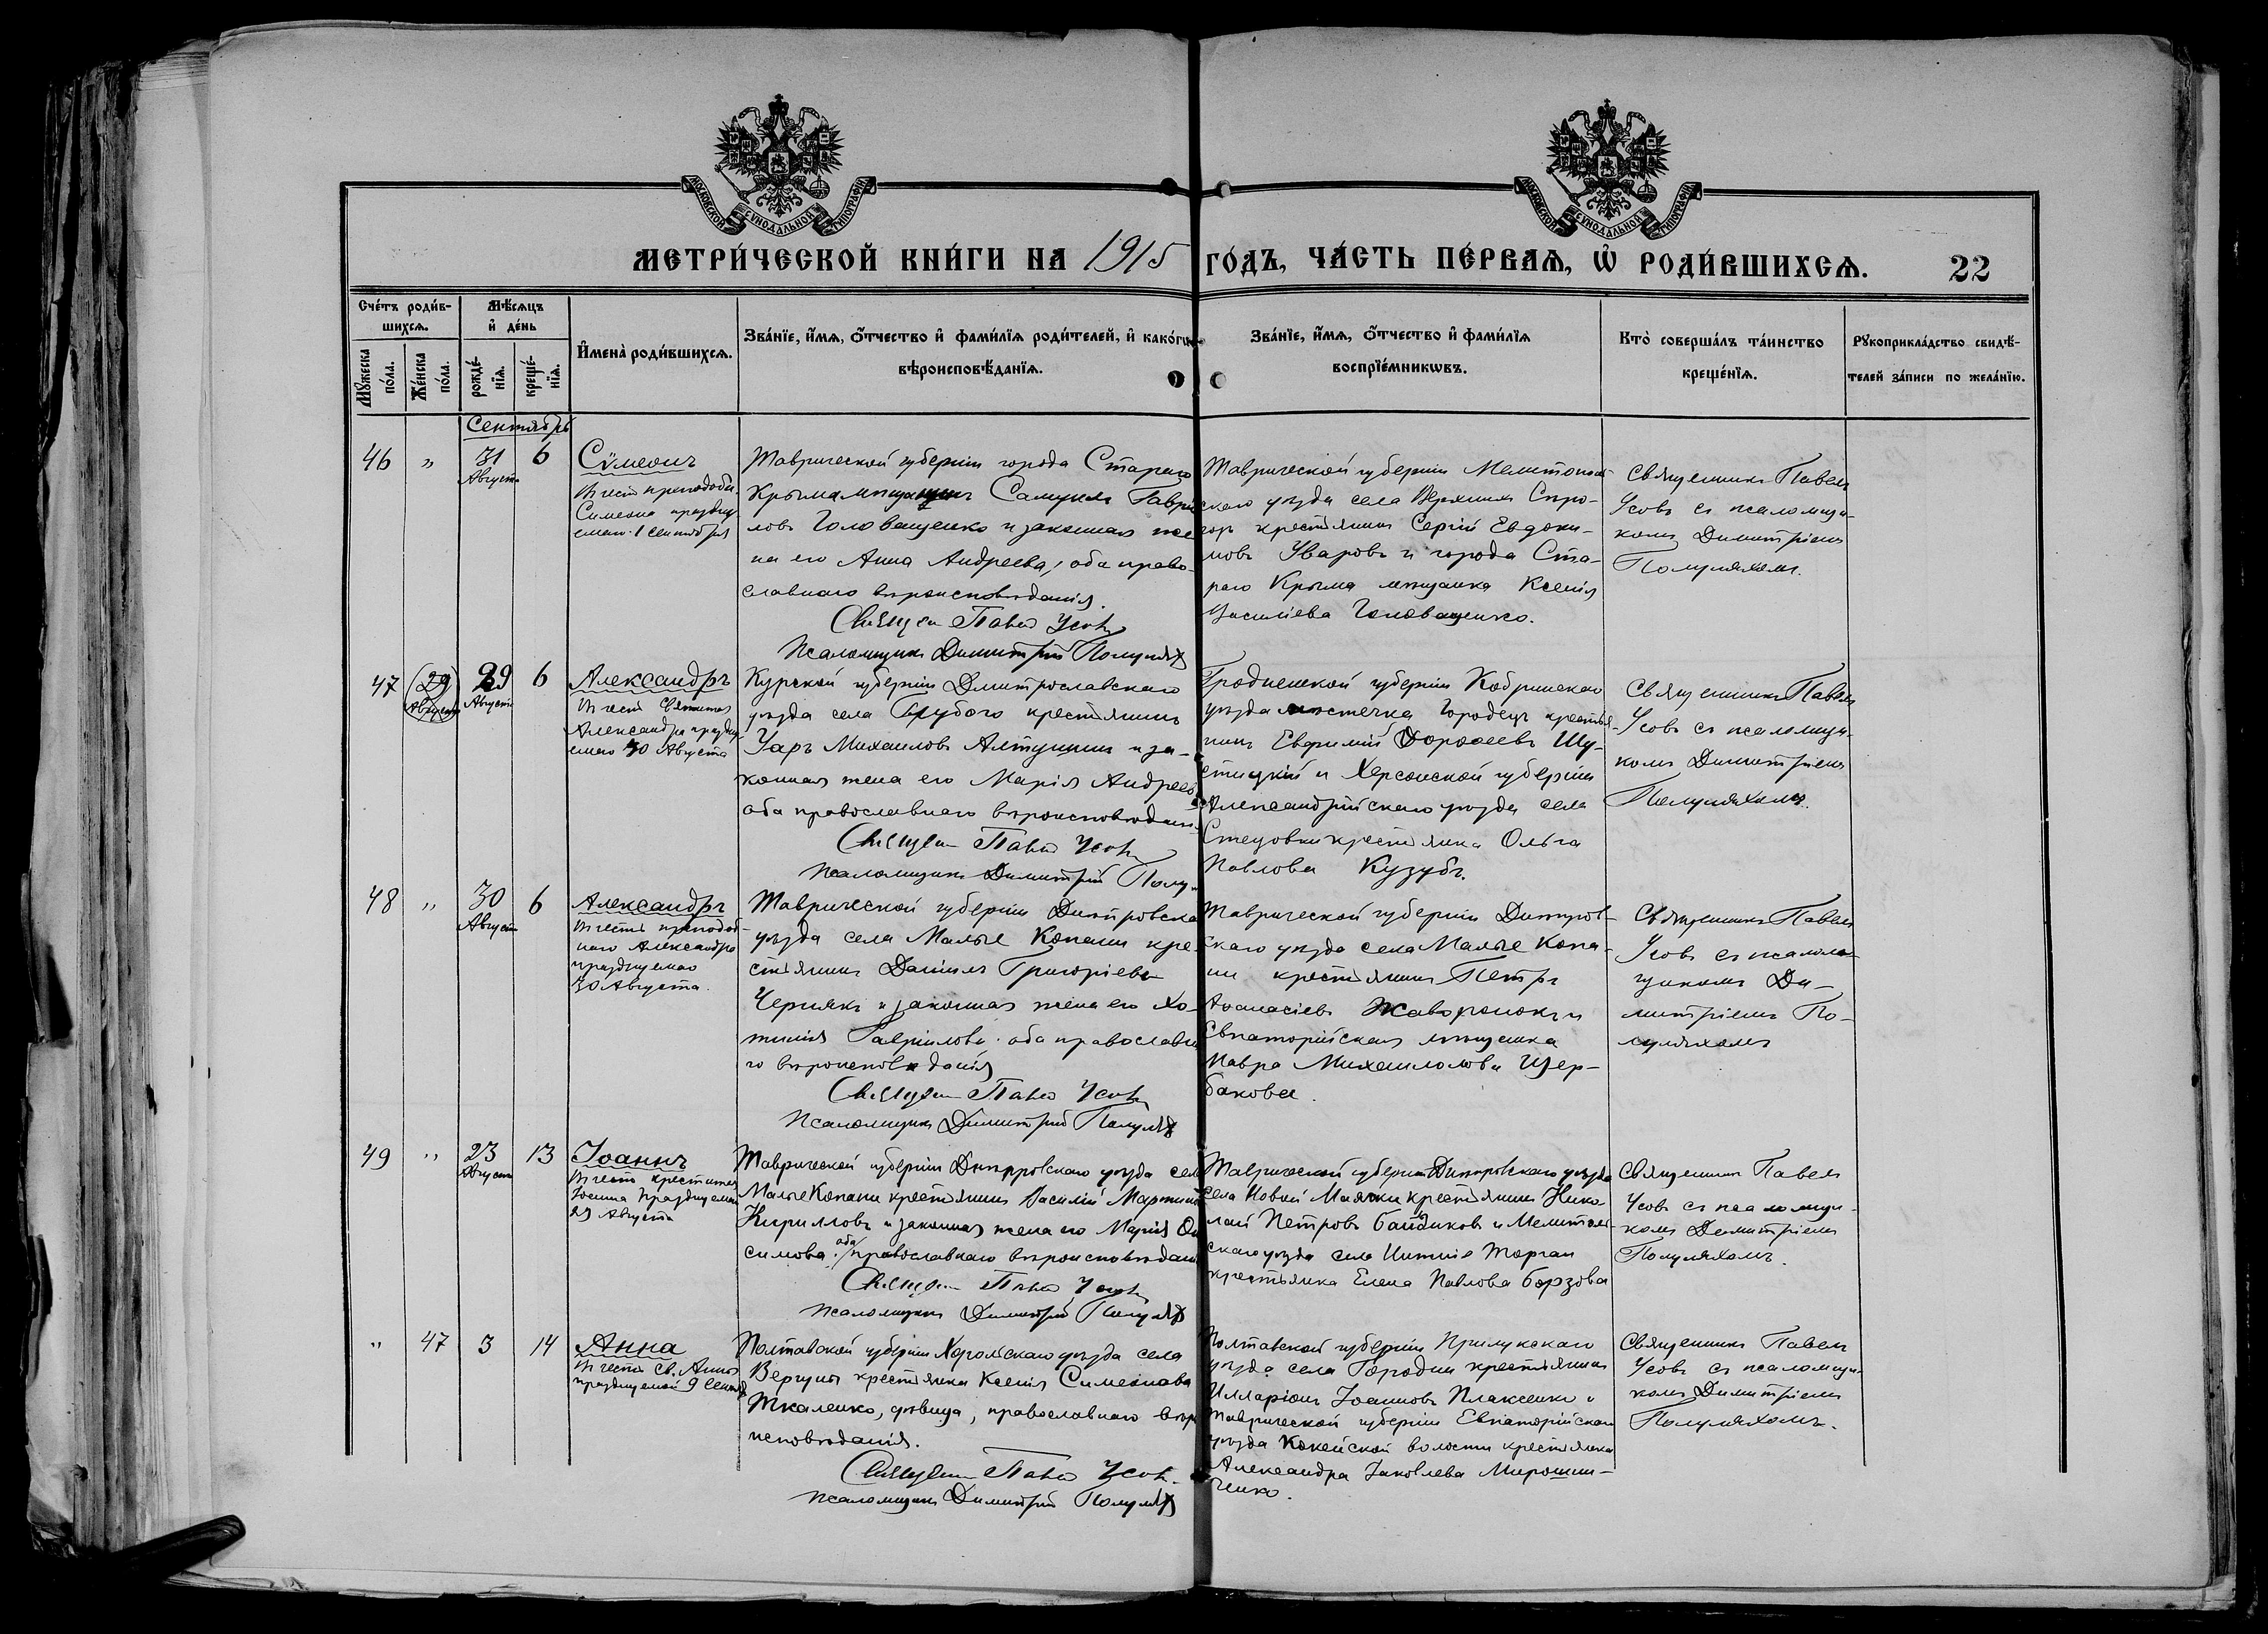 МОСКОВСКОЙ СѴНОДАЛЬНОЙ ТИПОГРАФІИ
МОСКОВСКОЙ СѴНОДАЛЬНОЙ ТИПОГРАФІИ
МЕТРИ́ЧЕСКОЙ КНИ́ГИ НА 1915 ГО́ДЪ, ЧА́СТЬ ПЕ́РВАѦ, Ѽ РОДИ́ВШИХСѦ. 22
Сче́тъ роди́в-
шихсѧ.
Мꙋжеска по́ла.
Же́нска по́ла.
Мѣ́сѧцъ
и҆ де́нь
рожде́-
нїѧ.
креще́-
нїѧ.
И҆мена̀ роди́вшихсѧ.
Зва́нїе, и҆́мѧ, ѻ҆́тчество и҆ фами́лїѧ роди́телей, и҆ како́гѡ
вѣроисповѣ́данїѧ.
Зва́нїе, и҆́мѧ, ѻ҆́тчество и҆ фами́лїѧ
воспрїе́мникѡвъ.
Кто̀ соверша́лъ та́инство
креще́нїѧ.
Рꙋкоприкла́дство свидѣ́-
телей за́писи по жела́нїю.
Сентябрь
46 " 31 6
Августа
Сѵмеонъ
Въ честь преподобн.
Симеона праздну-
емаго 1 сентября
Таврической губерніи города Стараго
Крыма мѣщанинъ Самуилъ Гаврі
ловъ Головащенко и законная же
на его Анна Андреева, оба право-
славнаго вѣроисповѣданія.
Священ Павелъ Усовъ
Псаломщикъ Димитрій Полулях
Таврической губерніи Мелитополь-
скаго уѣзда села Верхнихъ Сиро-
гозъ крестьянинъ Сергій Евдоки-
мовъ Уваровъ и города Ста-
раго Крыма мѣщанка Ксенія
Васильева Головащенко.
Священникъ Павелъ
Усовъ съ псаломщи-
комъ Димитріемъ
Полуляхомъ.
47 (29 Августа) 29 6
Августа
Александръ
Въ честь Святителя
Александра праздну-
емаго 30 Августа
Курской губерніи Дмитрославскаго
уѣзда села крестьянинъ
Уаръ Михаиловъ Алтунинъ и за-
конная жена его Марія Андреева
оба православнаго вѣроисповѣдан.
Священ Павелъ Усовъ
Псаломщикъ Димитрій Полул
Гродненской губерніи Кобринскаго
уѣзда мѣстечка Городецъ крестья-
нинъ Евфимій Дорофеевъ Шу-
стицкій и Херсонской губерніи
Александрійскаго уѣзда села
Стецовки крестьянка Ольга
Павлова Кузубъ.
Священникъ Павелъ
Усовъ съ псаломщи-
комъ Димитріемъ
Полуляхомъ.
48 " 30 6
Август
Александръ
Въ честь преподоб-
наго Александра
празднуемаго
30 Августа.
Таврической губерніи Днѣпровска
уѣзда села Малые Копани кре-
стьянинъ Даніилъ Григоріевъ
Чернякъ и законная жена его Хо-
тинія Гавріилова оба православна
го вѣроисповѣданія
Священ Павелъ Усовъ
Псаломщикъ Димитрій Полулях
Таврической губерніи Днѣпров-
скаго уѣзда села Малые Копа-
ни крестьянинъ Петръ
Аѳанасіевъ Жаворонокъ и
Евпаторійская мѣщанка
Мавра Михаилолова Щер-
бакова.
Священникъ Павелъ
Усовъ съ псалом-
щикомъ Ди-
митріемъ По-
луляхомъ
49 " 23 13
Августа
Іоаннъ
Въ честь крестителя
Іоанна празднуемаго
29 Августа
Таврической губерніи Днѣпровскаго уѣзда села
Малые Копани крестьянинъ Василій Мартиновъ
Кирилловъ и законная жена его Марія Они
симова. оба православнаго вѣроисповѣдан
Священ Павелъ Усовъ
Псаломщикъ Димитрій Полулях
Таврической губерніи Днѣпровскаго уѣзда
села Новой Маячки крестьянинъ Нико-
лай Петровъ Байдиковъ и Мелитополь-
скаго уѣзда села Нижніе Торгаи
крестьянка Елена Павлова Борзова
Священникъ Павелъ
Усовъ съ псаломщи-
комъ Димитріемъ
Полуляхомъ.
" 47 3 14
Анна
Въ честь св. Анны
празднуемой 9 Сентяб
Полтавской губерніи Хорольскаго уѣзда села
Вергуны крестьянка Ксенія Симеонова
Ткаленко, дѣвица, православнаго вѣро
исповѣданія.
Священ Павелъ Усовъ.
Псаломщикъ Димитрій Полулях
Полтавской губерніи Прилукскаго
уѣзда села Городни крестьянинъ
Илларіонъ Іоанновъ Плаксенко и
Таврической губерніи Евпаторійскаго
уѣзда Кокейской волости крестьянка
Александра Іаковлева Мирошни-
ченко.
Священникъ Павелъ
Усовъ съ псаломщи-
комъ Димитріемъ
Полуляхомъ.